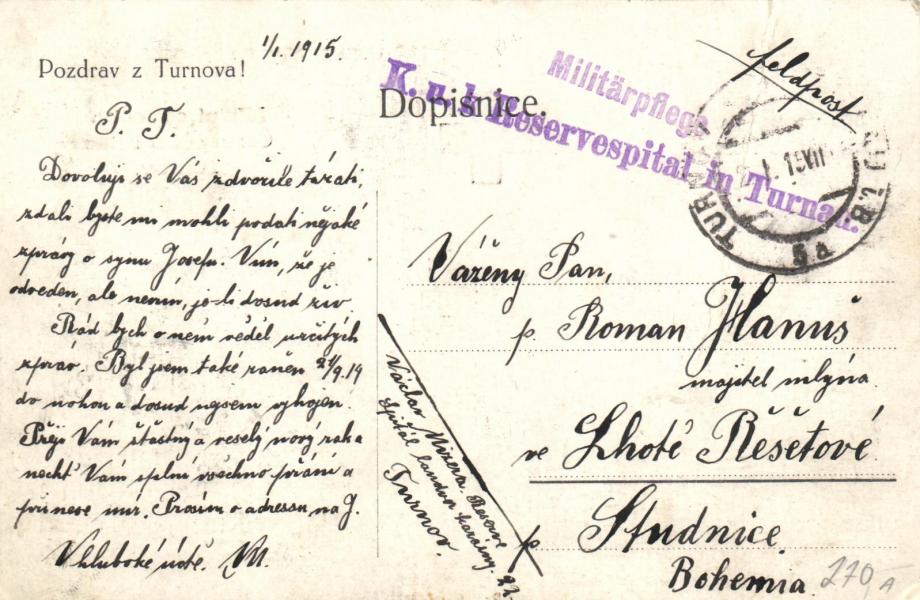 Pozdrav z Turnova!
1/I. 1915.
P. T.
Dovoluji se Vás zdvořile tázati,
zdali byste mi mohli podati nějaké
zprávy o synu Josefu. Vím, že je
odveden, ale nevím, je-li dosud živ
Rád bych o něm věděl určitých
zpráv. Byl jsem také raněn 24/9.14
do nohou a dosud nejsem vyhojen.
Přeji Vám šťastný a veselý nový rok a
nechť Vám splní všechno přání a
přinese mír. Prosím o adressu na J.
V hluboké úctě. VM.
Dopisnice.
feldpost
Militärpflege
K. u. k. Reservespital in Turnau.
TURNOV
5a
Vážený Pan,
p. Roman Hanuš
majitel mlýna
ve Lhotě Řešetové
p Studnice
Bohemia
Václav Mizera Reserve
Spitál
Turnov.
270,- A